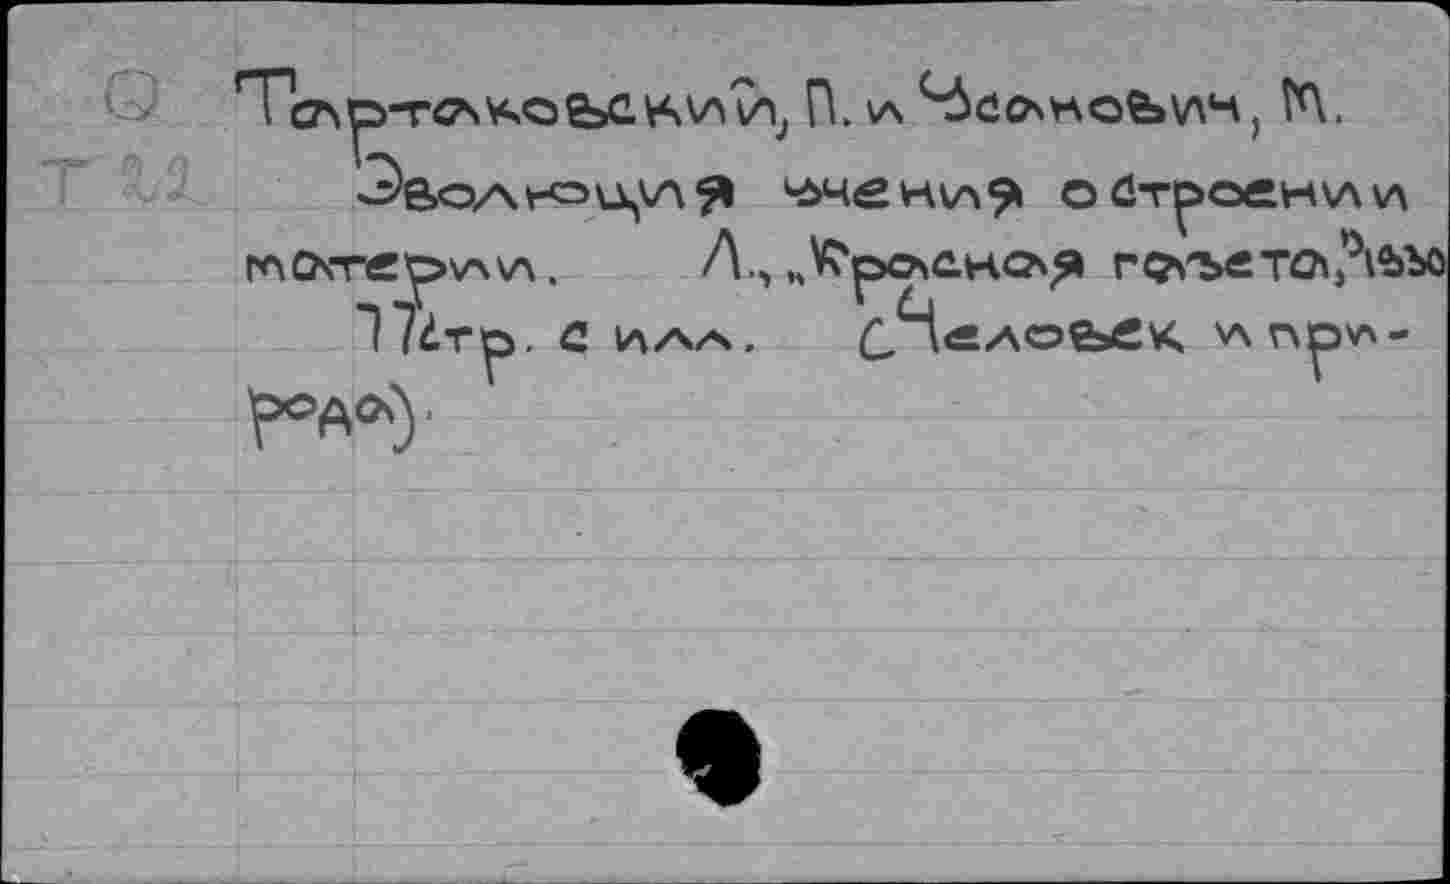 Q Тартаковский, П. и Усанович, М.
Т 22 Эволюция учения о строении
материи. Л., „Красная газета",
175тр. с илл. (Человек и при-
рода).